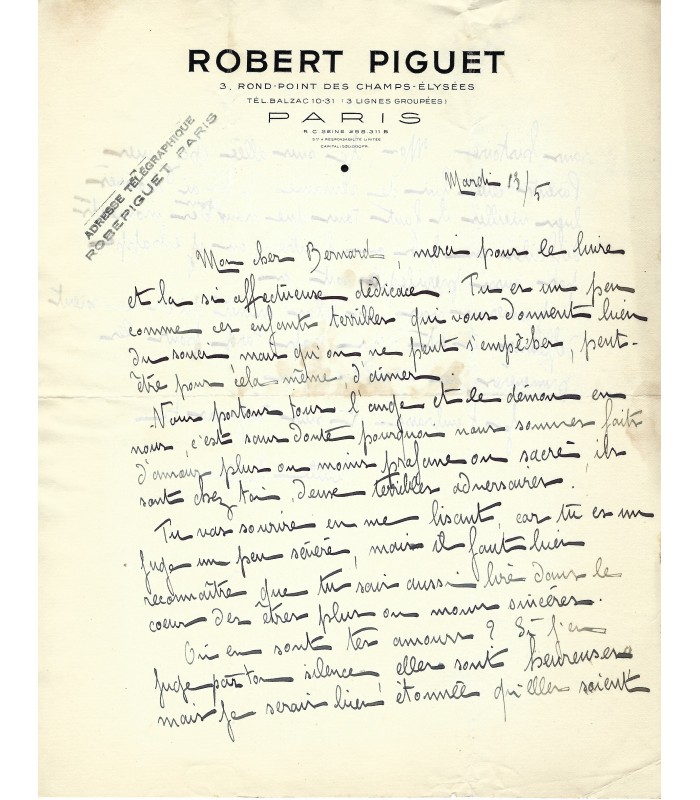 ROBERT PIGUET
3, ROND-POINT DES CHAMPS-ÉLYSÉES
TÉL. BALZAC 10-31 (3 LIGNES GROUPÉES)
PARIS
R.C. SEINE 258.311 B
STÉ A RESPONSABILITÉ LIMITÉE
ADRESSE TÉLÉGRAPHIQUE
ROBEPIGUET PARIS
Mardi 13/5
Mon cher Bernard, merci pour le livre
et la si affectueuse dédicace. Tu es un peu
comme ces enfants terribles qui vous donnent bien
du souci mais qu'on ne peut s'empêcher, peut-
être pour cela même, d'aimer.
Nous portons tous l'ange et le démon en
nous, c'est sans doute pourquoi nous sommes faits
d'amour plus ou moins profane ou sacré, ils
sont chez toi, deux terribles adversaires.
Tu vas sourire en me lisant, car tu es un
juge un peu sévère, mais il faut bien
reconnaître que tu sais aussi lire dans le
coeur des êtres plus ou moins sincères.
Où en sont tes amours ? Si j'en
juge par ton silence, elles sont heureuses
mais je serais bien étonnée qu'elles soient